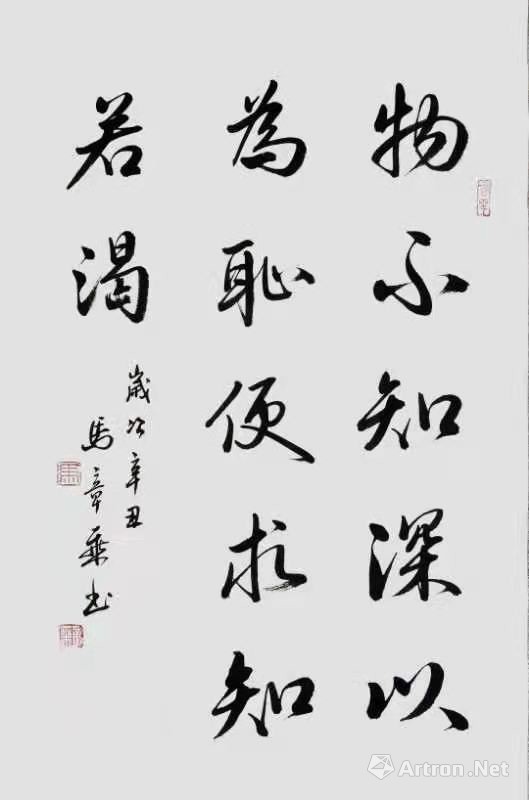 物不知深以
為恥便求知
若渴
歲次辛丑
馬章乘书
Artron.Net